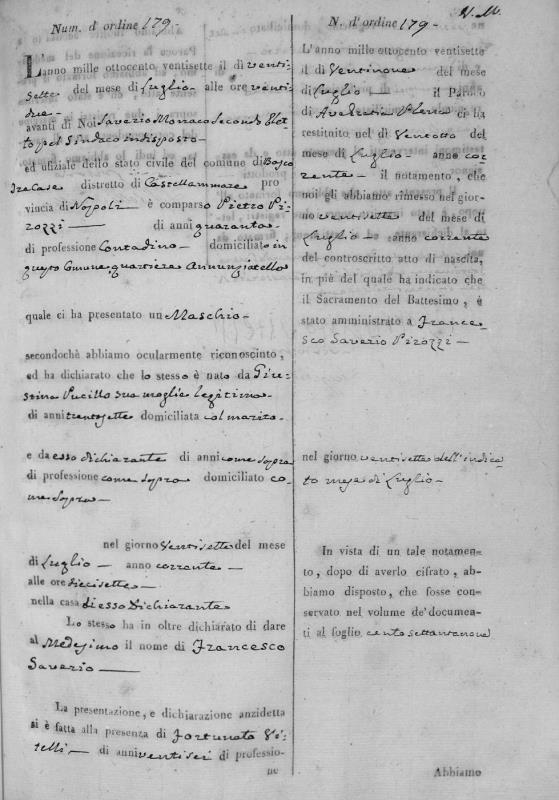 V. M.
Num. d'ordine 179.
L'anno mille ottocento ventisette il dì venti-
sette del mese di Luglio alle ore venti
due
avanti di Noi Saverio Monaco Secondo Elet-
to pel Sindaco indisposto
ed ufiziale dello stato civile del comune di Bosco
Tre Case distretto di Castellammare pro
vincia di Napoli è comparso Pietro Pi-
rozzi di anni quaranta
di professione Contadino domiciliato in
questo Comune quartiere Annunziatella
quale ci ha presentato un Maschio
secondochè abbiamo ocularmente riconosciuto,
ed ha dichiarato che lo stesso è nato da Giu-
stina Pucillo sua moglie legitima
di anni trentasette domiciliata col marito
e da esso dichiarante di anni come sopra
di professione come sopra domiciliato co-
me sopra
nel giorno Ventisette del mese
di Luglio anno corrente
alle ore diecisette
nella casa di esso Dichiarante
Lo stesso ha in oltre dichiarato di dare
al Medesimo il nome di Francesco
Saverio
La presentazione, e dichiarazione anzidetta
si è fatta alla presenza di Fortunato Vi-
telli di anni ventisei di professio-
ne
N. d'ordine 179
L'anno mille ottocento ventisette
il dì Ventinove del mese
di Luglio il Parroco
di ci ha
restituito nel dì Ventotto del
mese di Luglio anno cor
rente il notamento, che
noi gli abbiamo rimesso nel gior-
no ventisette del mese di
Luglio anno corrente
del controscritto atto di nascita,
in piè del quale ha indicato che
il Sacramento del Battesimo, è
stato amministrato a France-
sco Saverio Pirozzi
nel giorno ventisette dell'indica
to mese di Luglio
In vista di un tale notamen-
to, dopo di averlo cifrato, ab-
biamo disposto, che fosse con-
servato nel volume de' documen-
ti al foglio cento settantanove
Abbiamo